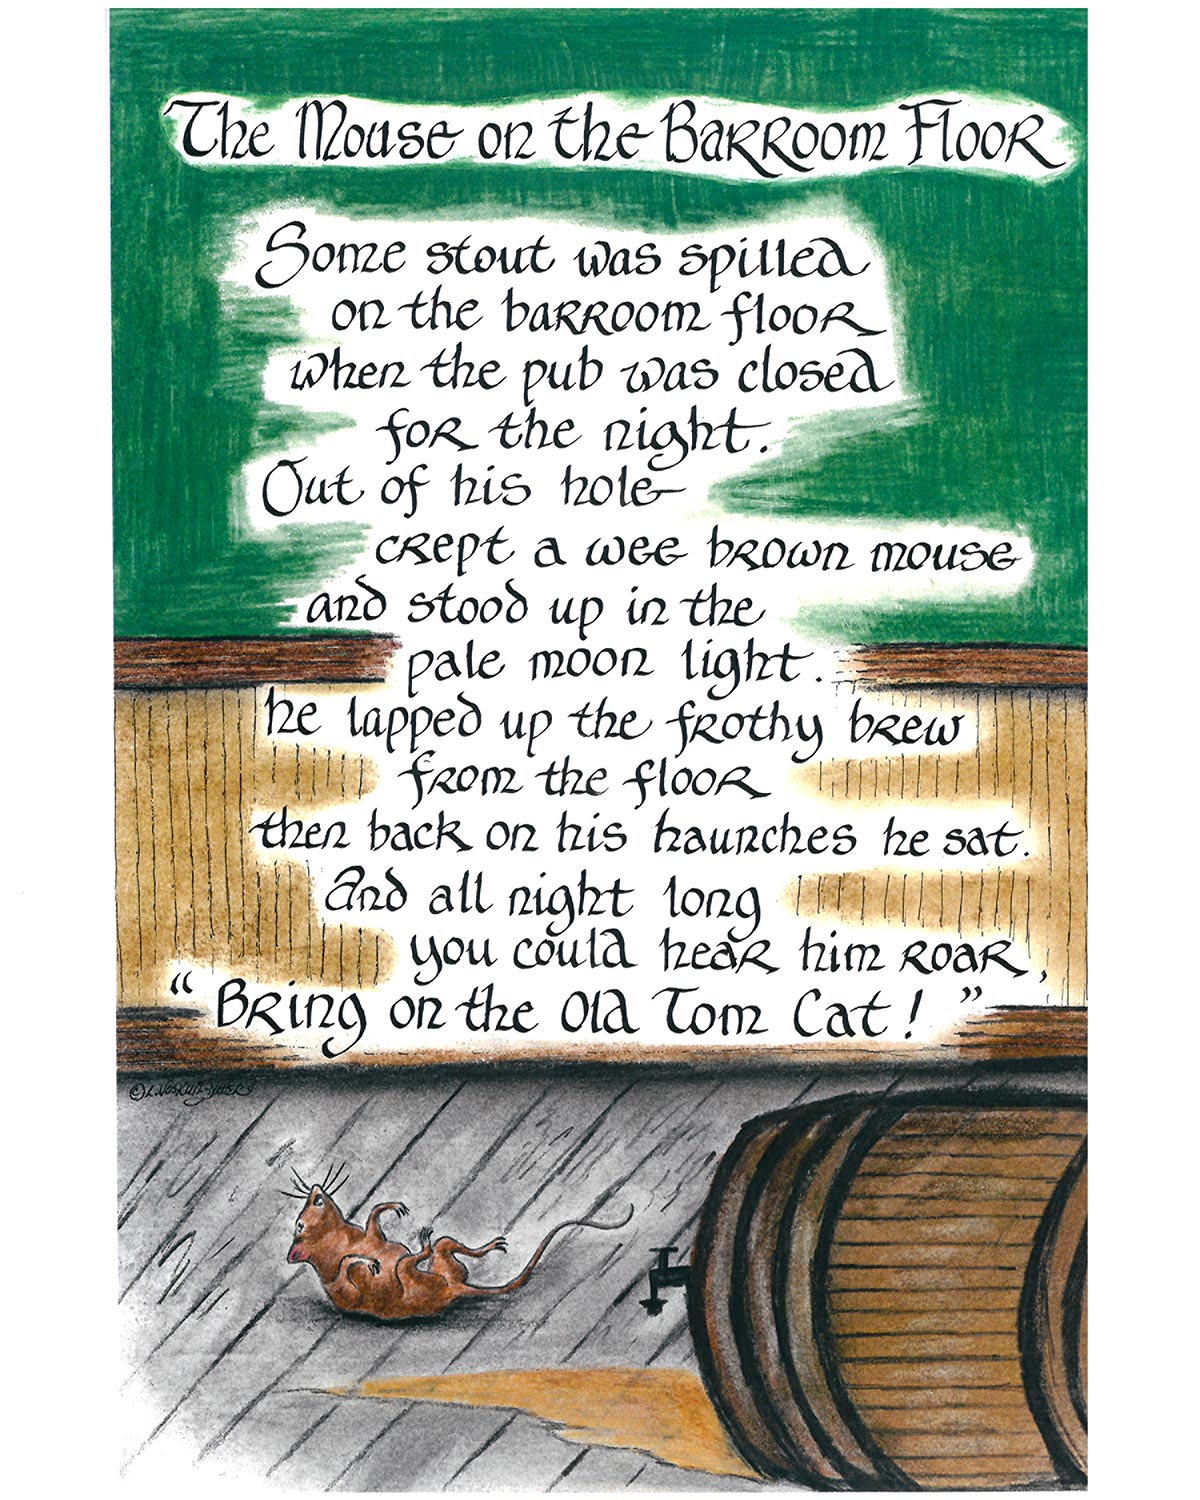 The Mouse on the Barroom Floor
Some stout was spilled
on the barroom floor
when the pub was closed
for the night.
Out of his hole
crept a wee brown mouse
and stood up in the
pale moon light.
he lapped up the frothy brew
from the floor
then back on his haunches he sat.
And all night long
you could hear him roar,
"Bring on the Old Tom Cat!"
©L.